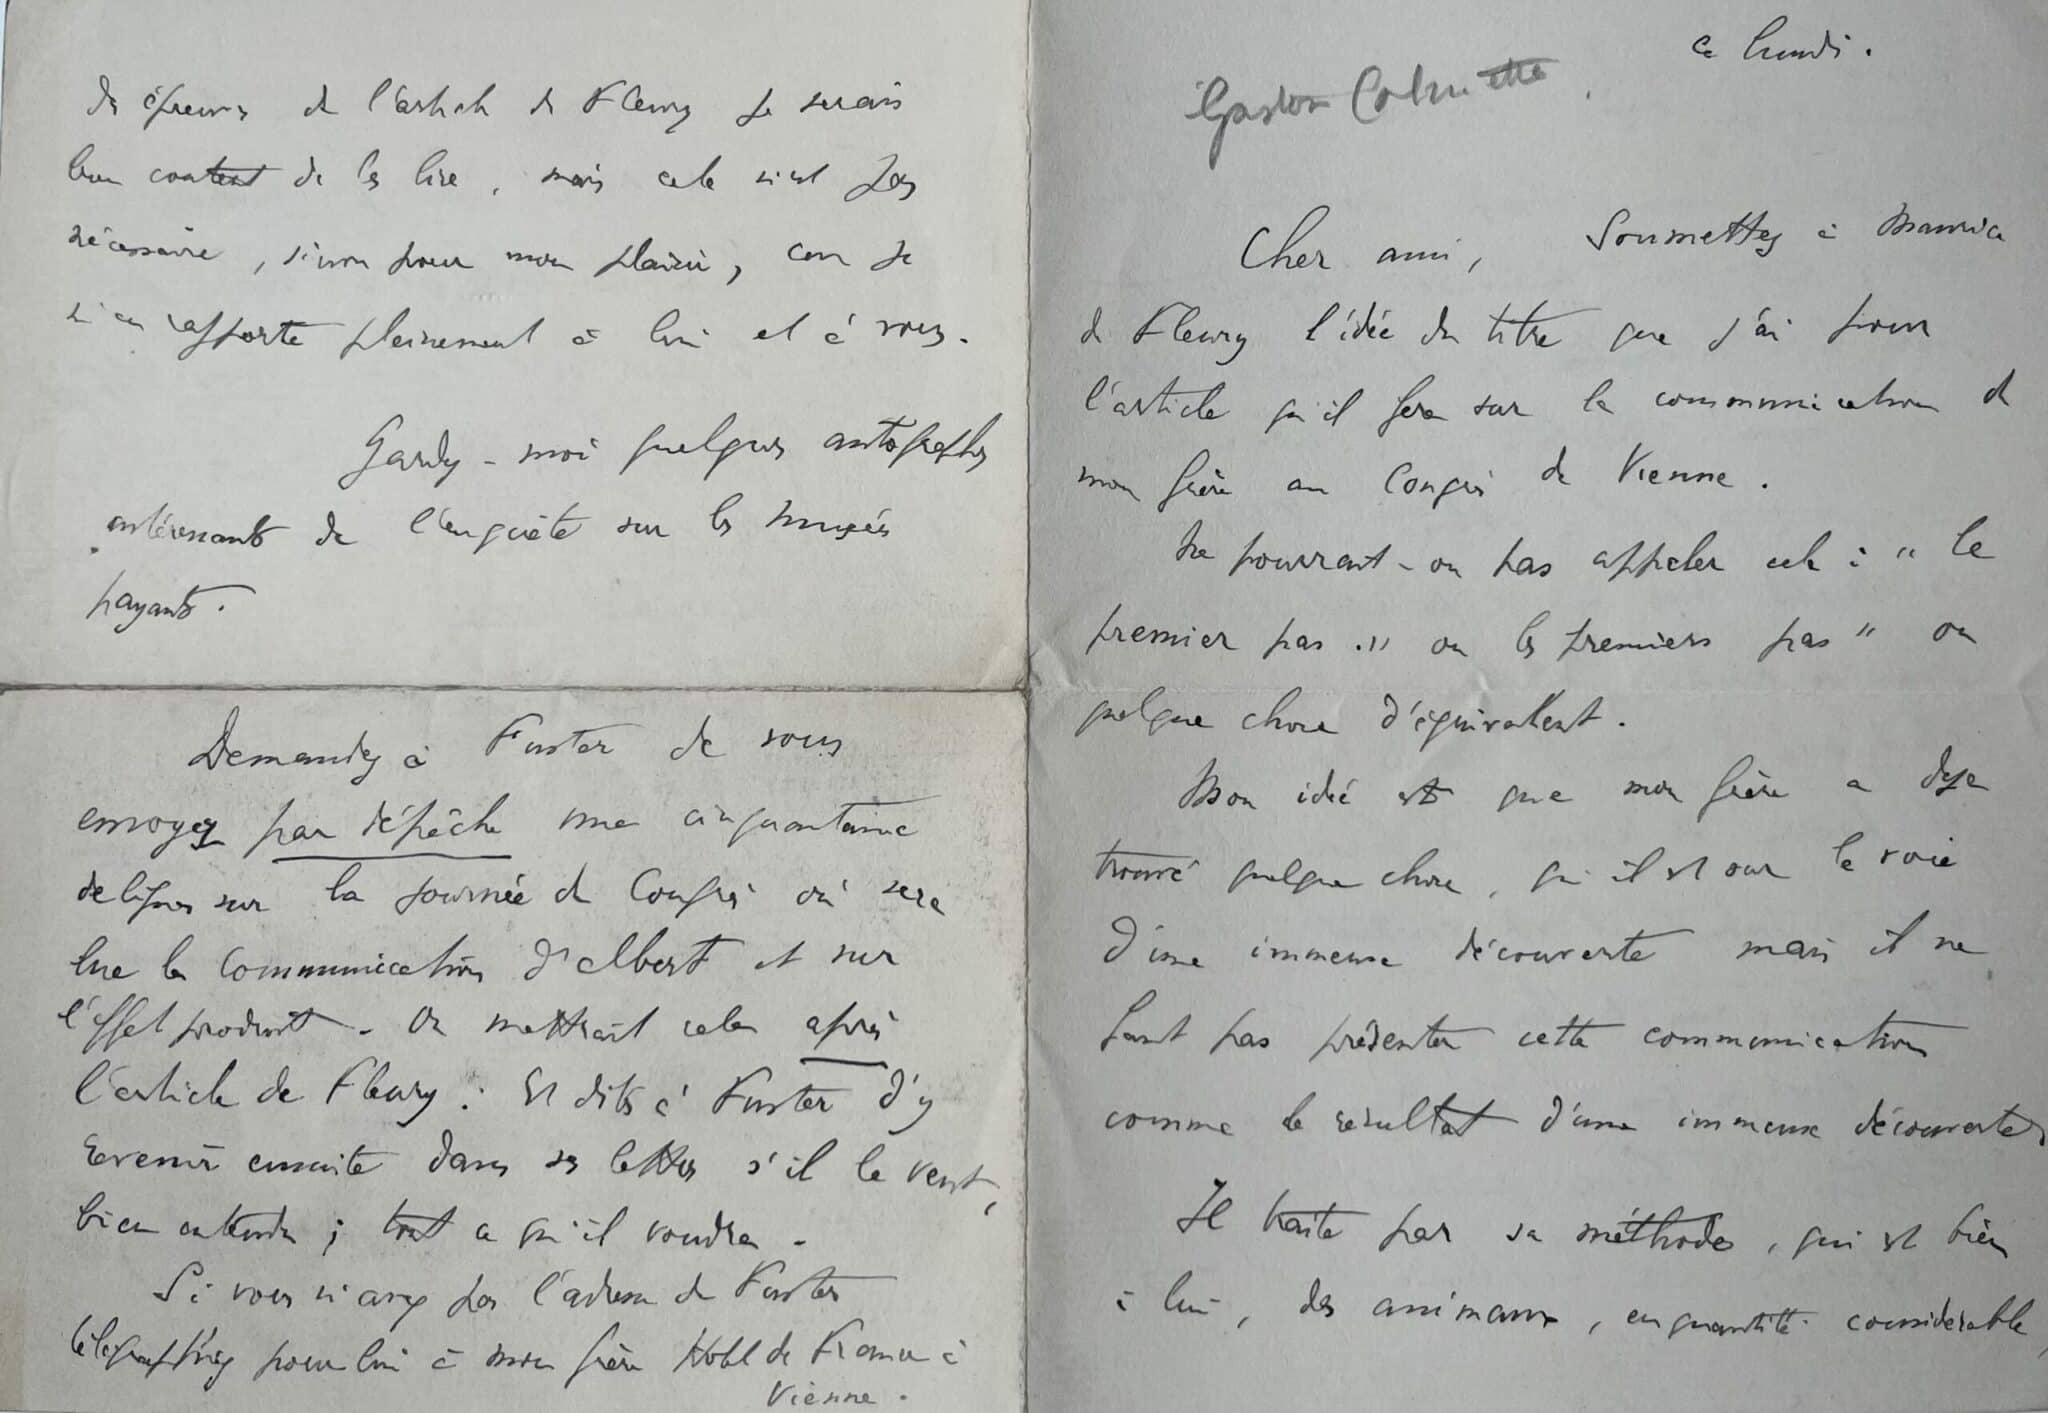 ce lundi.
Gaston Calmette
Cher ami, Soumettez à Maurice
de Fleury l'idée du titre que j'ai pour
l'article qu'il fera sur la communication de
mon frère au Congrès de Vienne.
Ne pourrait-on pas appeler cela : "le
premier pas." ou les premiers pas" ou
quelque chose d'équivallent.
Mon idée est que mon frère a déjà
trouvé quelque chose, qu'il est sur la voie
d'une immense découverte mais il ne
faut pas présenter cette communication
comme le résultat d'une immense découverte.
Il traite par sa méthode, qui est bien
à lui, des animaux, en quantité considérable,
des épreuves de l'article de Fleury je serais
bien content de les lire, mais cela n'est pas
nécessaire, sinon pour mon plaisir, car je
m'en rapporte pleinement à lui et à vous.
Gardez-moi quelques autographes
intéressants de l'enquête sur les musées
payants.
Demandez à Fuster de vous
envoyez par dépêche une cinquantaine
de lignes sur la journée du Congrès où sera
lue la communication d'Albert et sur
l'effet produit. On mettrait cela après
l'article de Fleury. Et dites à Fuster d'y
revenir ensuite dans ses lettres s'il le veut,
bien entendu ; tout ce qu'il voudra.
Si vous n'avez pas l'adresse de Fuster
télégraphiez pour lui à mon frère Hôtel de France à
Vienne.